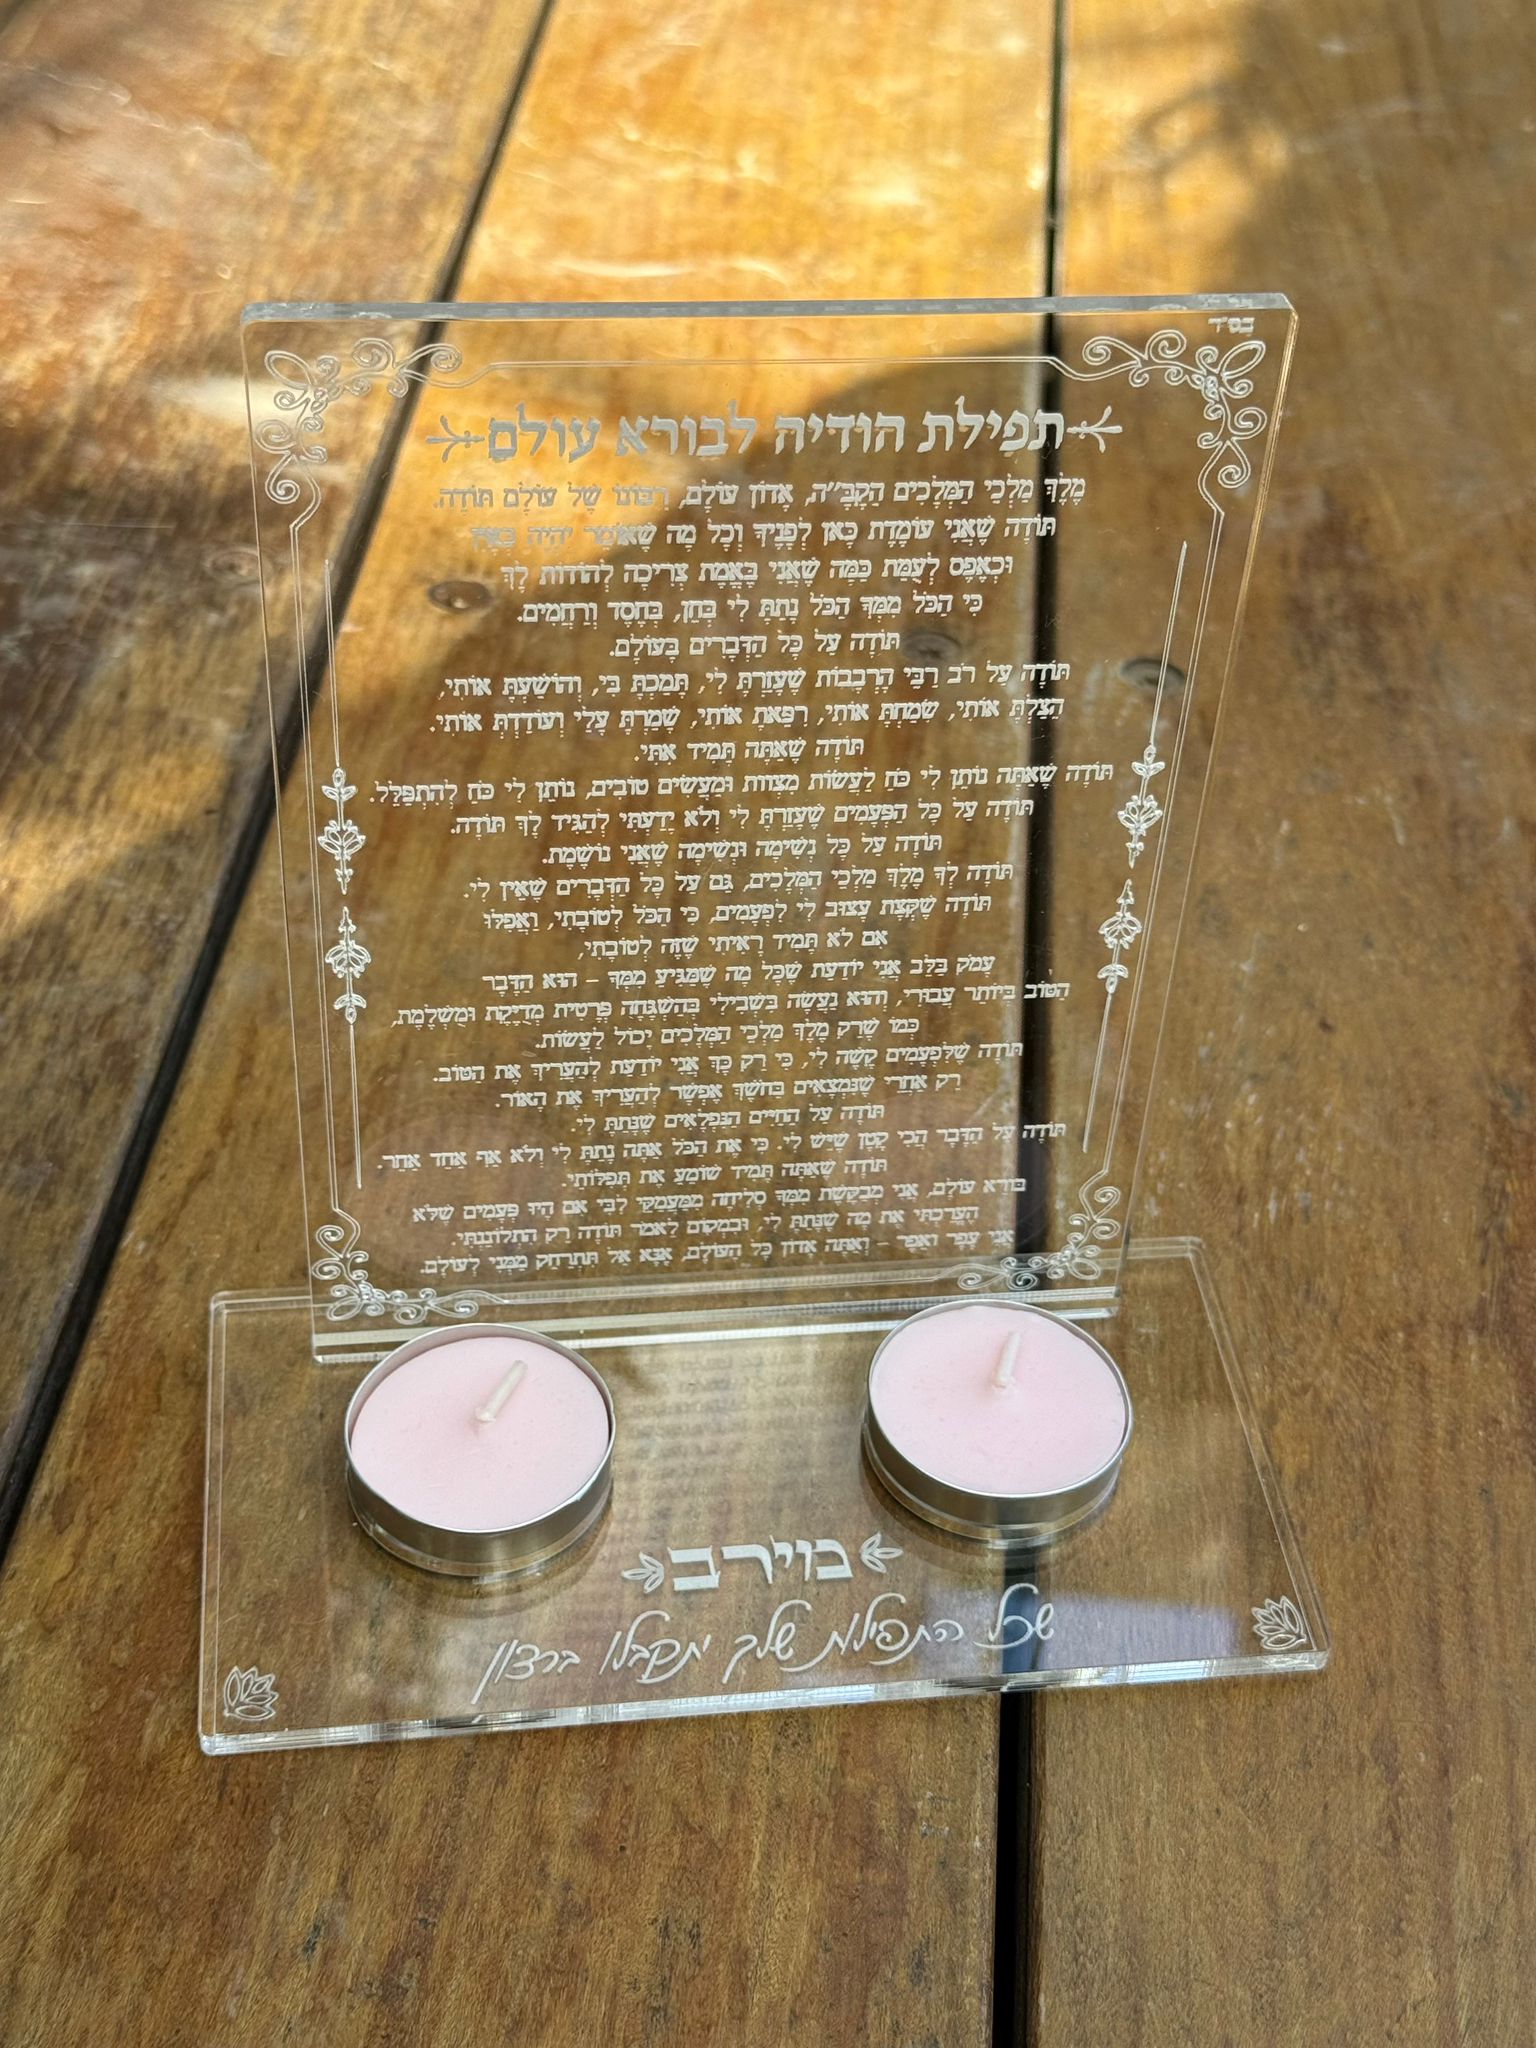 בס"ד
תפילת הודיה לבורא עולם
מֶלֶךְ מַלְכֵי הַמְּלָכִים הַקָּבָּ"ה, אֲדוֹן עוֹלָם, רִבּוֹנוֹ שֶׁל עוֹלָם תּוֹדָה.
תּוֹדָה שֶׁאֲנִי עוֹמֶדֶת כָּאן לְפָנֶיךָ וְכָל מָה שֶׁאוֹמַר יִהְיֶה כְּאַיִן
וּכְאֶפֶס לְעֻמַּת כַּמָּה שֶׁאֲנִי בֶּאֱמֶת צְרִיכָה לְהוֹדוֹת לָךְ
כִּי הַכֹּל מִמְּךָ הַכֹּל נָתַתָּ לִי בְּחֵן, בְּחֶסֶד וְרַחֲמִים.
תּוֹדָה עַל כָּל הַדְּבָרִים בָּעוֹלָם.
תּוֹדָה עַל רֹב רִבֵּי הָרְבָבוֹת שֶׁעָזַרְתָּ לִי, תָּמַכְתָּ בִּי, וְהוֹשַׁעְתָּ אוֹתִי,
הִצַּלְתָּ אוֹתִי, שִׂמַּחְתָּ אוֹתִי, רִפֵּאתָ אוֹתִי, שָׁמַרְתָּ עָלַי וְעוֹדַדְתָּ אוֹתִי.
תּוֹדָה שֶׁאַתָּה תָּמִיד אִתִּי.
תּוֹדָה שֶׁאַתָּה נוֹתֵן לִי כֹּחַ לַעֲשׂוֹת מִצְווֹת וּמַעֲשִׂים טוֹבִים, נוֹתֵן לִי כֹּחַ לְהִתְפַּלֵּל.
תּוֹדָה עַל כָּל הַפְּעָמִים שֶׁעָזַרְתָּ לִי וְלֹא יָדַעְתִּי לְהַגִּיד לְךָ תּוֹדָה.
תּוֹדָה עַל כָּל נְשִׁימָה וּנְשִׁימָה שֶׁאֲנִי נוֹשֶׁמֶת.
תּוֹדָה לְךָ מֶלֶךְ מַלְכֵי הַמְּלָכִים, גַּם עַל כָּל הַדְּבָרִים שֶׁאֵין לִי.
תּוֹדָה שֶׁקְּצָת עָצוּב לִי לִפְעָמִים, כִּי הַכֹּל לְטוֹבָתִי, וַאֲפִלּוּ
אִם לֹא תָּמִיד רָאִיתִי שֶׁזֶּה לְטוֹבָתִי,
עָמֹק בַּלֵּב אֲנִי יוֹדַעַת שֶׁכָּל מָה שֶׁמַּגִּיעַ מִמְּךָ – הוּא הַדָּבָר
הַטּוֹב בְּיוֹתֵר עֲבוּרִי, וְהוּא נַעֲשָׂה בִּשְׁבִילִי בְּהַשְׁגָּחָה פְּרָטִית מְדֻיֶּקֶת וּמֻשְׁלֶמֶת,
כְּמוֹ שֶׁרַק מֶלֶךְ מַלְכֵי הַמְּלָכִים יָכוֹל לַעֲשׂוֹת.
תּוֹדָה שֶׁלִּפְעָמִים קָשֶׁה לִי, כִּי רַק כָּךְ אֲנִי יוֹדַעַת לְהַעֲרִיךְ אֶת הַטּוֹב.
רַק אַחֲרֵי שֶׁנִּמְצָאִים בַּחֹשֶׁךְ אֶפְשָׁר לְהַעֲרִיךְ אֶת הָאוֹר.
תּוֹדָה עַל הַחַיִּים הַנִּפְלָאִים שֶׁנָּתַתָּ לִי.
תּוֹדָה עַל הַדָּבָר הֲכִי קָטָן שֶׁיֵּשׁ לִי. כִּי אֶת הַכֹּל אַתָּה נָתַתָּ לִי וְלֹא אַף אֶחָד אַחֵר.
תּוֹדָה שֶׁאַתָּה תָּמִיד שׁוֹמֵעַ אֶת תְּפִלּוֹתַי.
בּוֹרֵא עוֹלָם, אֲנִי מְבַקֶּשֶׁת מִמְּךָ סְלִיחָה מִמַּעֲמַקֵּי לִבִּי אִם הָיוּ פְּעָמִים שֶׁלֹּא
הֶעֱרַכְתִּי אֶת מָה שֶׁנָּתַתָּ לִי, וּבִמְקוֹם לֵאמֹר תּוֹדָה רַק הִתְלוֹנַנְתִּי.
אֲנִי עָפָר וָאֵפֶר – וְאַתָּה אֲדוֹן כָּל הָעוֹלָם, אָנָּא אַל תִּתְרַחֵק מִמֶּנִּי לְעוֹלָם.
מוירב
שכל התפילות שלך יתקבלו ברצון